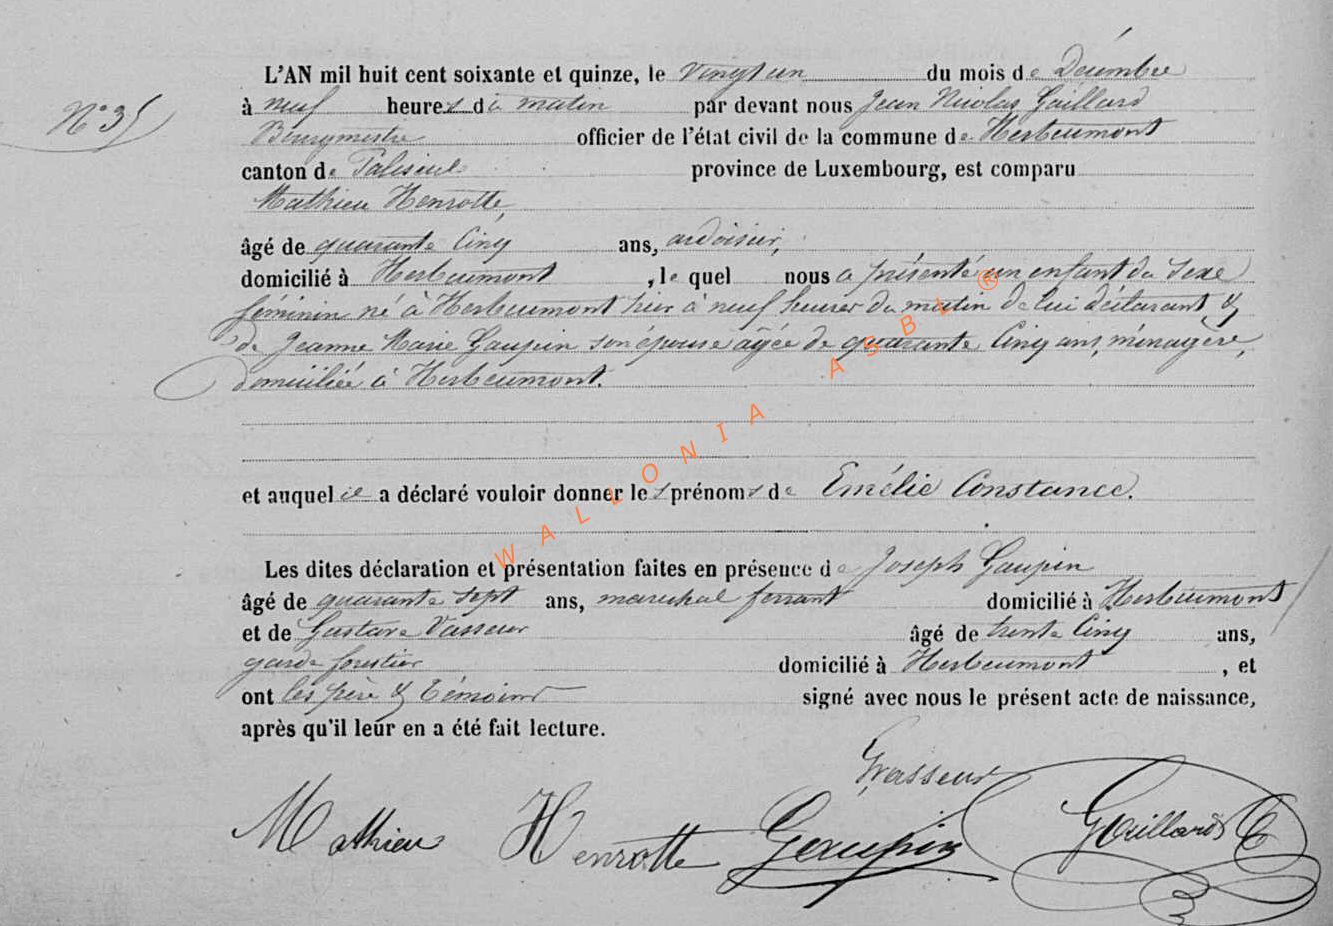 L'AN mil huit cent soixante et quinze, le vingt un du mois de Décembre
N° 35
à neuf heures du matin par devant nous Jean Nicolas Gaillard
Bourgmestre officier de l'état civil de la commune de Herbeumont
canton de Paliseul province de Luxembourg, est comparu
Mathieu Henrotte,
âgé de quarante cinq ans, ardoisier,
domicilié à Herbeumont, le quel nous a présenté un enfant du sexe
féminin né à Herbeumont hier à neuf heures du matin de lui déclarant, &
de Jeanne Marie Gaupin son épouse âgée de quarante cinq ans, ménagère,
domiciliée à Herbeumont.
et auquel il a déclaré vouloir donner les prénoms de Emélie Constance.
Les dites déclaration et présentation faites en présence de Joseph Gaupin
âgé de quarante sept ans, marechal ferrant domicilié à Herbeumont
et de Gustave Vasseur âgé de trente cinq ans,
garde forestier domicilié à Herbeumont, et
ont les père & témoins signé avec nous le présent acte de naissance,
après qu'il leur en a été fait lecture.
Gvasseur
Mathieu Henrotte Gaupin Gaillard
WALLONIA ASBL ®